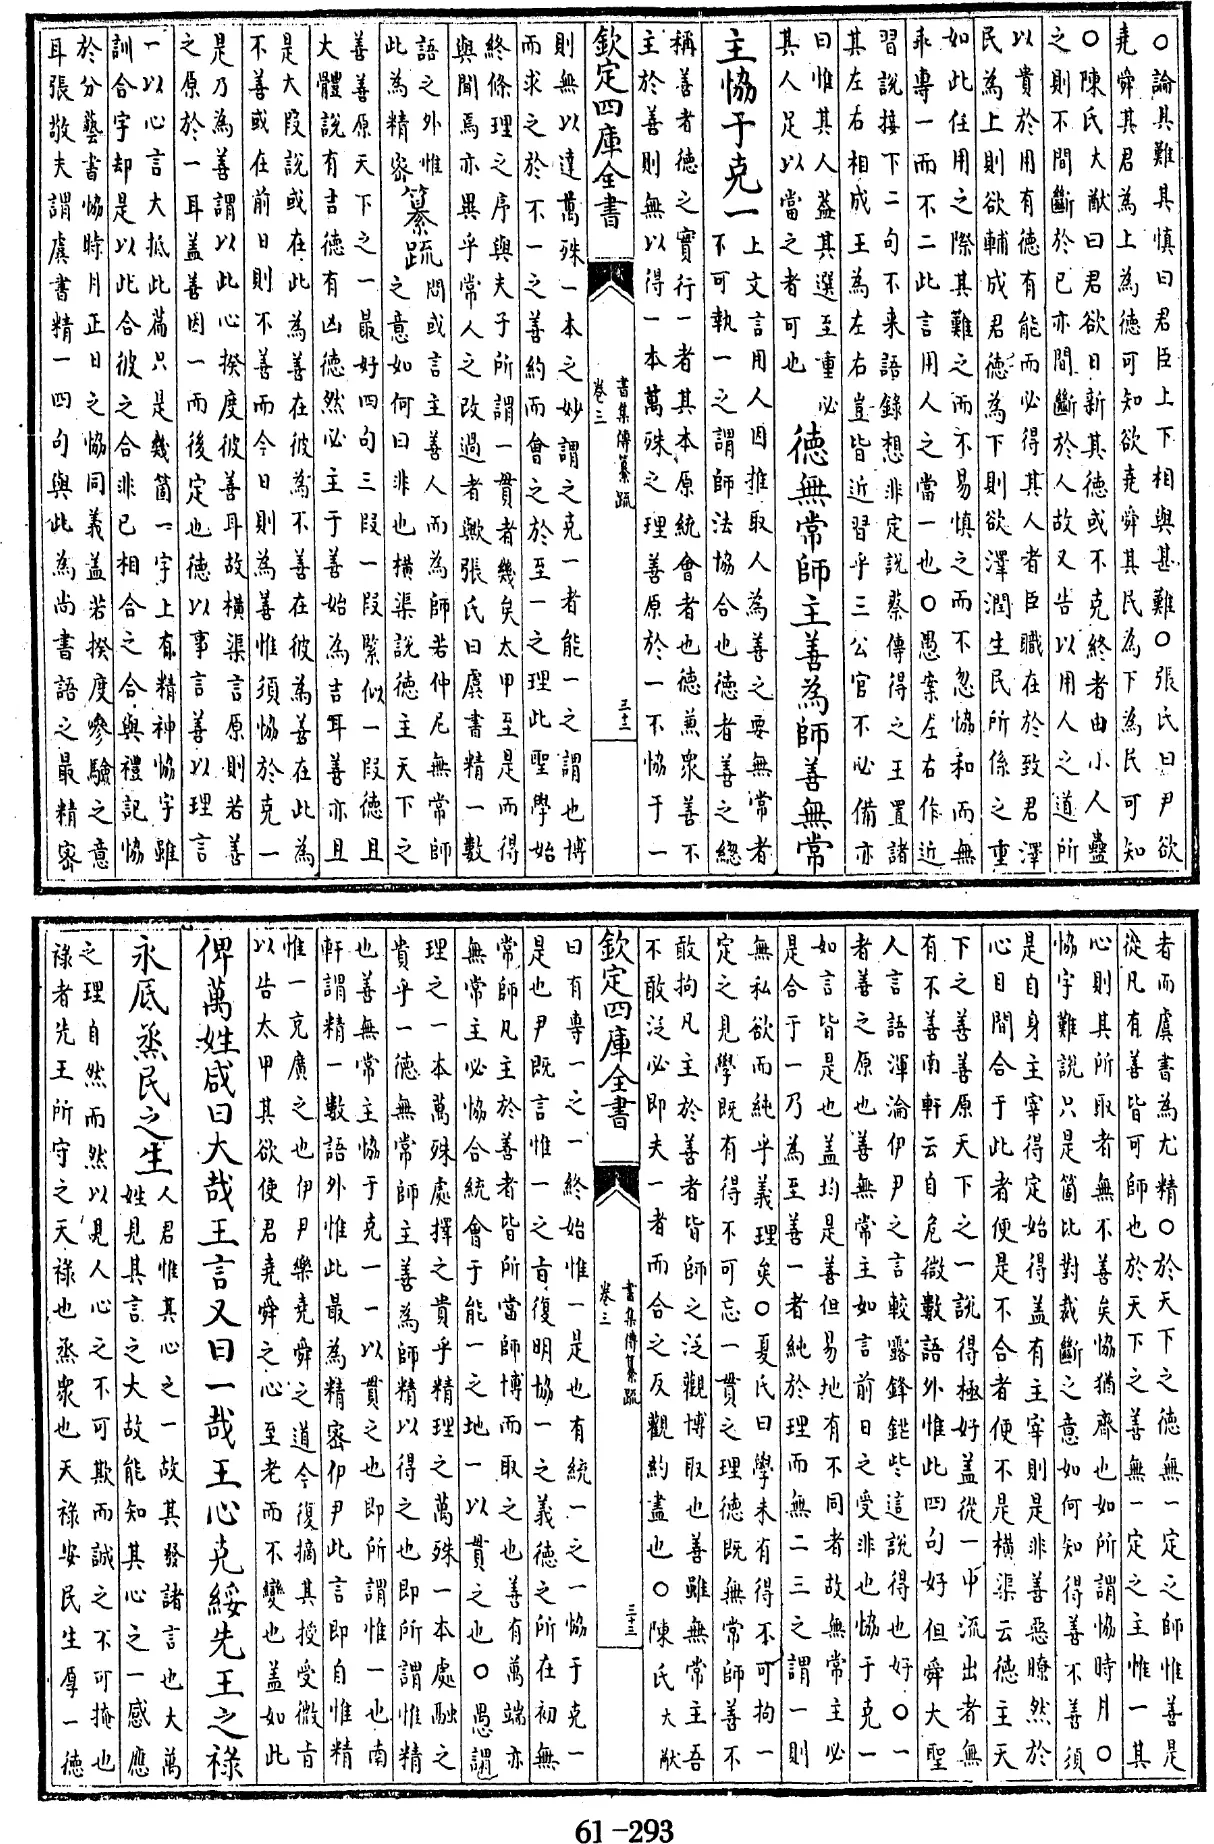 〇論其難其慎曰君臣上下相與甚難〇張氏曰尹欲
堯舜其君為上為德可知欲堯舜其民為下為民可知
〇陳氏大猷曰君欲日新其德或不克終者由小人蠱
之則不間斷於已亦間斷於人故又告以用人之道所
以貴於用有德有能而必得其人者臣職在於致君澤
民為上則欲輔成君德為下則欲澤潤生民所係之重
如此任用之際其難之而不易慎之而不忽協和而無
乖專一而不二此言用人之當一也〇愚案左右作近
習說接下二句不来語錄想非定說蔡傳得之王置諸
其左右相成王為左右豈皆近習乎三公官不必備亦
曰惟其人蓋其選至重必
其人足以當之者可也
德無常師主善為師善無常
主協于克一
上文言用人因推取人為善之要無常者
不可執一之謂師法協合也德者善之緫
稱善者德之實行一者其本原統會者也德兼衆善不
主於善則無以得一本萬殊之理善原於一不協于一
欽定四庫全書
書集傳纂疏
卷三
三十二
則無以達萬殊一本之妙謂之克一者能一之謂也博
而求之於不一之善約而會之於至一之理此聖學始
終條理之序與夫子所謂一貫者幾矣太甲至是而得
與聞焉亦異乎常人之改過者歟張氏曰虞書精一數
語之外惟
此為精密
纂疏
問或言主善人而為師若仲尼無常師
之意如何曰非也横渠說德主天下之
善善原天下之一最好四句三段一段緊似一段德且
大體說有吉德有凶德然必主于善始為吉耳善亦且
是大段說或在此為善在彼為不善在彼為善在此為
不善或在前日則不善而今日則為善惟須協於克一
是乃為善謂以此心揆度彼善耳故横渠言原則若善
之原於一耳蓋善因一而後定也德以事言善以理言
一以心言大抵此篇只是幾箇一字上有精神協字雖
訓合字却是以此合彼之合非已相合之合與禮記協
於分藝書協時月正日之協同義蓋若揆度參驗之意
耳張敬夫謂虞書精一四句與此為尚書語之最精密
者而虞書為尤精〇於天下之德無一定之師惟善是
從凡有善皆可師也於天下之善無一定之主惟一其
心則其所取者無不善矣協猶齊也如所謂協時月〇
協字難說只是箇比對裁斷之意如何知得善不善須
是自身主宰得定始得蓋有主宰則是非善惡瞭然於
心目間合于此者便是不合者便不是横渠云德主天
下之善善原天下之一說得極好蓋從一中流出者無
有不善南軒云自危微數語外惟此四句好但舜大聖
人言語渾淪伊尹之言較露鋒鋩些這說得也好〇一
者善之原也善無常主如言前日之受非也協于克一
如言皆是也蓋均是善但易地有不同者故無常主必
是合于一乃為至善一者純於理而無二三之謂一則
無私欲而純乎義理矣〇夏氏曰學未有得不可拘一
定之見學既有得不可忘一貫之理德既無常師善不
敢拘凡主於善者皆師之泛觀博取也善雖無常主吾
不敢泛必即夫一者而合之反觀約盡也〇陳氏大猷
欽定四庫全書
書集傳纂疏
卷三
三十三
曰有專一之一終始惟一是也有統一之一協于克一
是也尹既言惟一之㫖復明協一之義德之所在初無
常師凡主於善者皆所當師博而取之也善有萬端亦
無常主必協合統會于能一之地一以貫之也〇愚謂
理之一本萬殊處擇之貴乎精理之萬殊一本處融之
貴乎一德無常師主善為師精以得之也即所謂惟精
也善無常主協于克一一以貫之也即所謂惟一也南
軒謂精一數語外惟此最為精密伊尹此言即自惟精
惟一充廣之也伊尹樂堯舜之道今復摘其授受微㫖
以告太甲其欲使君堯舜之心至老而不變也蓋如此
俾萬姓咸曰大哉王言又曰一哉王心克綏先王之祿
永厎烝民之生
人君惟其心之一故其發諸言也大萬
姓見其言之大故能知其心之一感應
之理自然而然以見人心之不可欺而誠之不可掩也
祿者先王所守之天祿也烝衆也天祿安民生厚一德
61-293